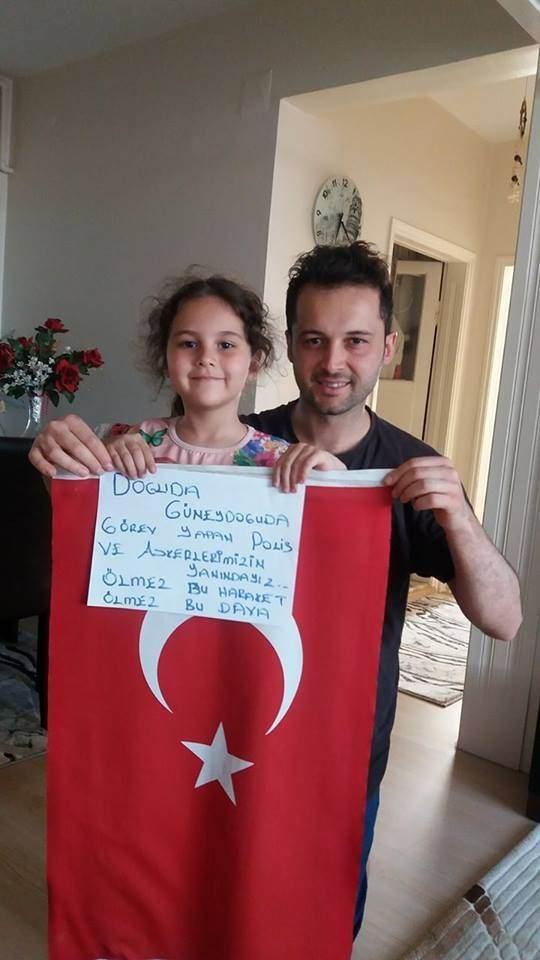 DOĞUDA
GÜNEYDOĞUDA
GÖREV YAPAN POLİS
VE ASKERLERİMİZİN
YANINDAYIZ...
ÖLMEZ BU HARAKET
ÖLMEZ BU DAVA